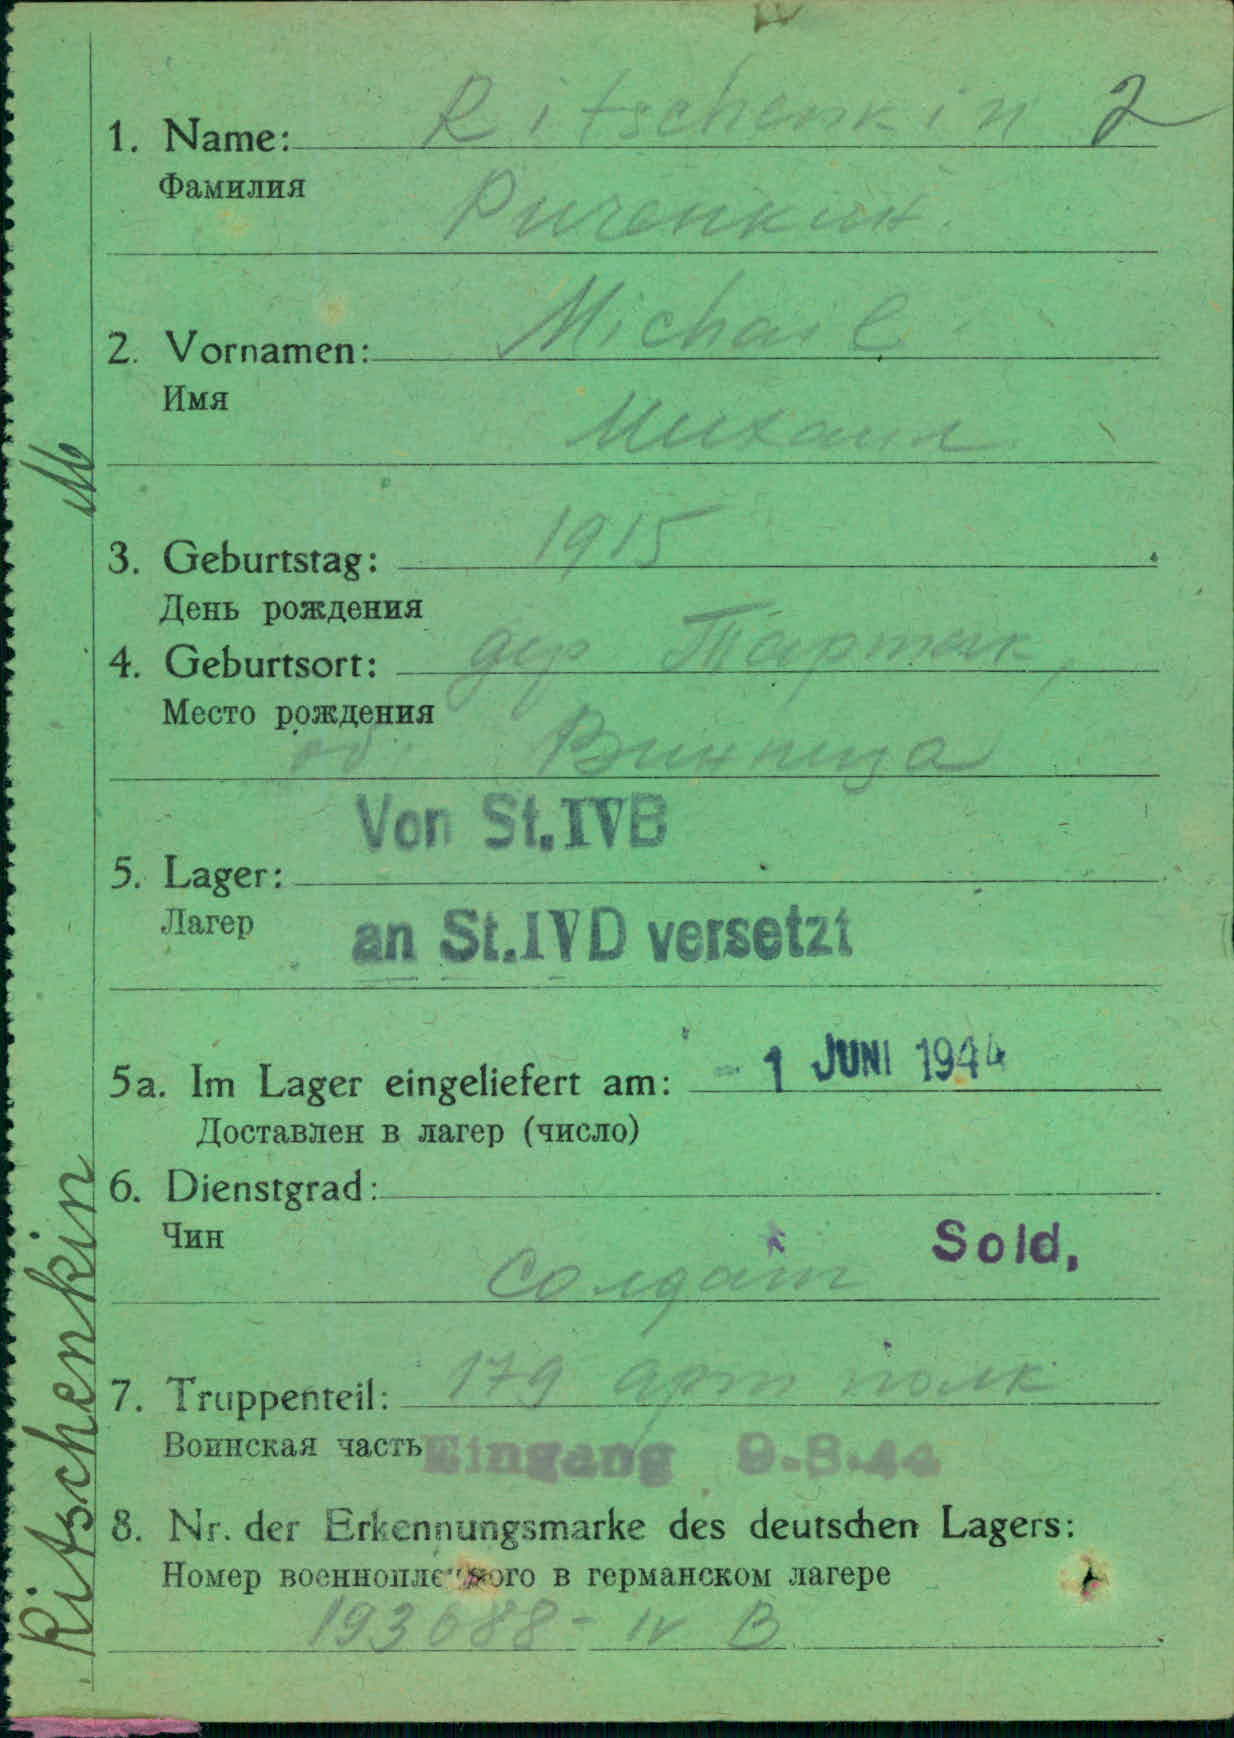 1. Name: Ritschenkin 2
Фамилия
Риченкин
2. Vornamen: Michail
Имя
Михаил
3. Geburtstag: 1915
День рождения
4. Geburtsort: дер Тартак,
Место рождения
об. Винница
Von St.IVB
5. Lager:
Лагер
an St.IVD versetzt
5a. Im Lager eingeliefert am: - 1 JUNI 1944
Доставлен в лагер (число)
6. Dienstgrad:
Чин
Sold.
Солдат
7. Truppenteil: 179 арт полк
Воинская часть
Eingang 9.8.44
8. Nr. der Erkennungsmarke des deutschen Lagers:
Номер военнопленного в германском лагере
193688 - IV B
Ritschenkin M